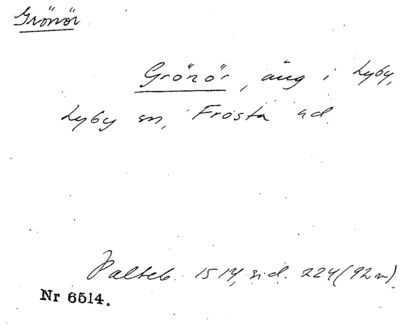 Grönör
Grönör, äng i Lyby,
Lyby sn, Frosta hd.
Palteb. 1514, sid. 224 (92 n)
Nr 6514.